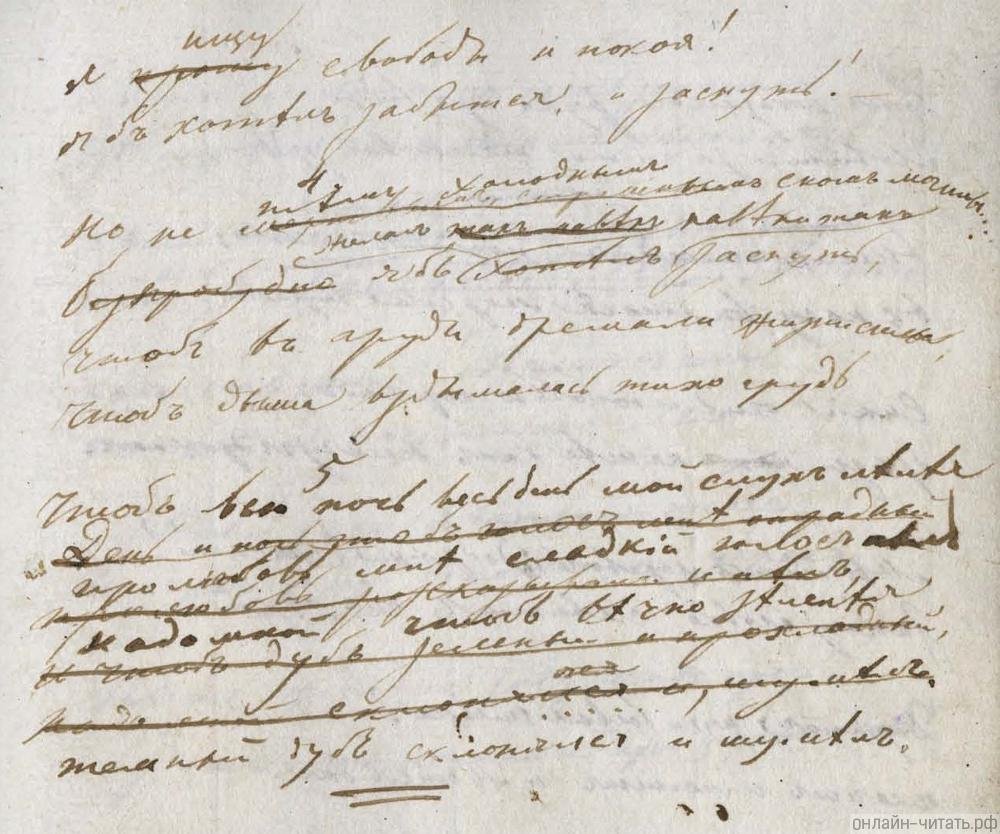 ищу
Я прошу свободы и покоя!
Я бъ хотѣлъ забыться, и заснуть! —
4
Но не тѣмъ холоднымъ сномъ могилы...
Желалъ навѣки такъ
безпробудно я бъ хотѣлъ заснуть,
Чтобъ въ груди дремали жизни силы,
Чтобъ дыша вздымалась тихо грудь
5
Чтобъ всю ночь весь день мой слухъ лелѣя
День и ночь чтобъ голосъ мнѣ отрадный
про любовь мнѣ сладкій голосъ пѣлъ
про любовь разсказывалъ и пѣлъ,
Надомной чтобъ вѣчно зеленѣя
И чтобъ дубъ зеленый и прохладный,
надомной склонялся и шумѣлъ.
темный дубъ склонялся и шумѣлъ.
онлайн-читать.рф